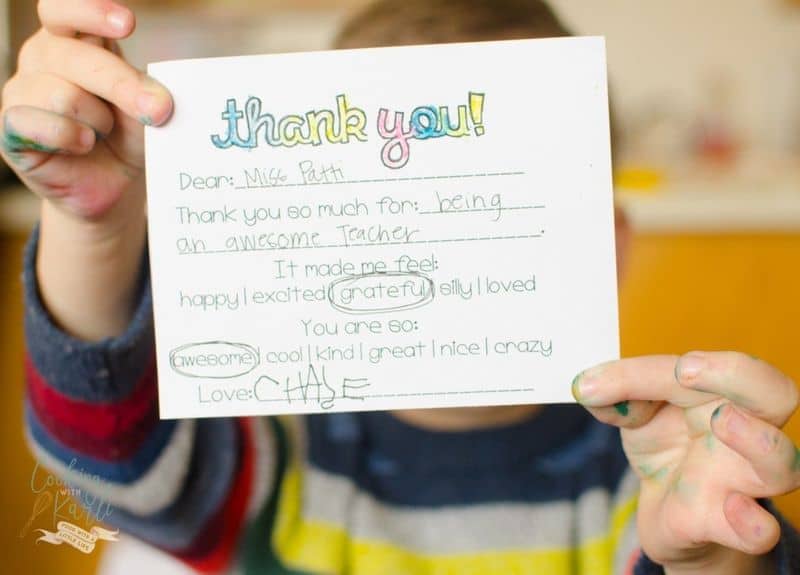 thank you!
Dear: Miss Patti
Thank you so much for: being
an awesome Teacher.
It made me feel:
happy | excited | grateful | silly | loved
You are so:
awesome | cool | kind | great | nice | crazy
Love: CHASE
Cooking
WITH
Karli
COOK WITH A
LITTLE LESS